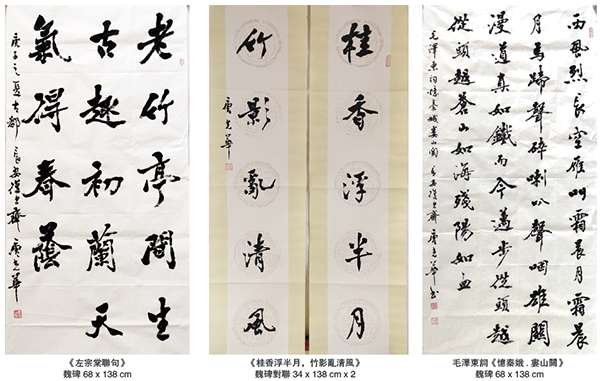 老竹亭間生
古趣初蘭天
氣得春蔭
庚子之夏古都長安
桂香浮半月
竹影亂清風
西風烈長空雁叫霜晨月霜晨
月馬蹄聲碎喇叭聲咽雄關
漫道真如鐵而今邁步從頭越
從頭越蒼山如海殘陽如血
毛澤東詞憶秦娥婁山關
《左宗棠聯句》
魏碑 68 x 138 cm
《桂香浮半月，竹影亂清風》
魏碑對聯 34 x 138 cm x 2
毛澤東詞《憶秦娥．婁山關》
魏碑 68 x 138 cm